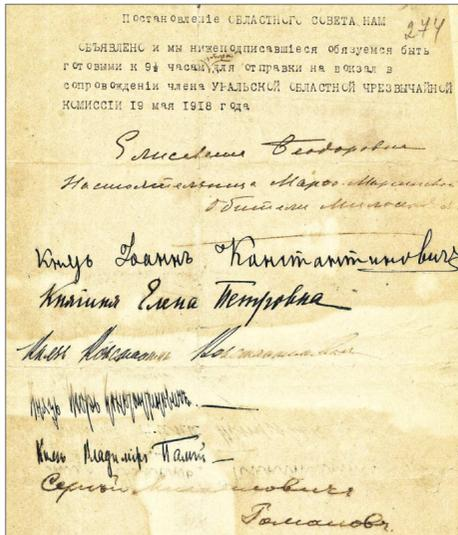 Постановленіе ОБЛАСТНОГО СОВЕТА НАМ
274
ОБЪЯВЛЕНО и мы нижеподписавшіеся обязуемся быть
готовыми к 9½ часам для отправки на вокзал в
сопровожденіи члена УРАЛЬСКОЙ ОБЛАСТНОЙ ЧРЕЗВЫЧАЙНОЙ
КОМИССІИ 19 мая 1918 года
Елисавета Ѳеодоровна
Настоятельница Марѳо Маріинской
Обители Милосердія
Князь Іоаннъ Константиновичъ
Княгиня Елена Петровна
Князь Константинъ Константиновичъ
Князь Игорь Константиновичъ
Князь Владиміръ Палѣй
Сергѣй Михайловичъ
Романовъ